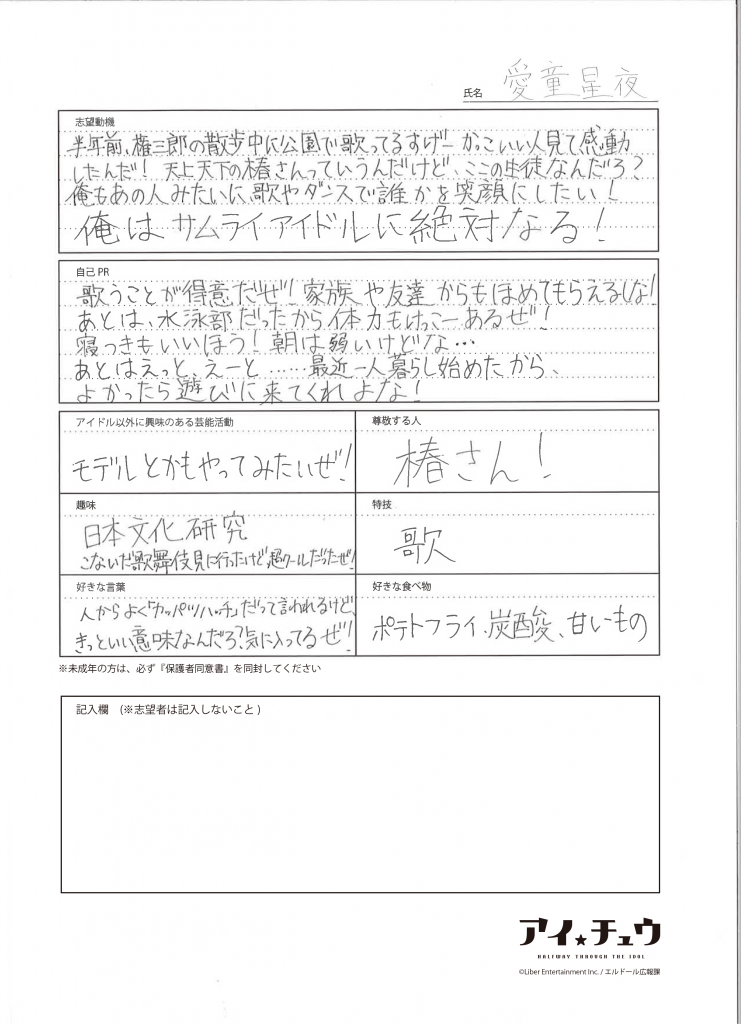 氏名 愛童星夜
志望動機
半年前、権三郎の散歩中に公園で歌ってるすげーかっこいい人見て感動
したんだ！ 天上天下の椿さんっていうんだけど、ここの生徒なんだろ？
俺もあの人みたいに、歌やダンスで誰かを笑顔にしたい！
俺はサムライアイドルに絶対なる！
自己PR
歌うことが得意だぜ！家族や友達からもほめてもらえるしな！
あとは、水泳部だったから体力もけっこーあるぜ！
寝つきもいいほう！朝は弱いけどな…
あとはえっと、えーと……最近一人暮らし始めたから、
よかったら遊びに来てくれよな！
アイドル以外に興味のある芸能活動
モデルとかもやってみたいぜ！
尊敬する人
椿さん！
趣味
日本文化研究
こないだ歌舞伎見に行ったけど超クールだったぜ！
特技
歌
好きな言葉
人からよく「カッパツハッチ」だって言われるけど、
きっといい意味なんだろ？気に入ってるぜ！
好きな食べ物
ポテトフライ、炭酸、甘いもの
※未成年の方は、必ず『保護者同意書』を同封してください
記入欄 (※志望者は記入しないこと)
アイ★チュウ
HALFWAY THROUGH THE IDOL
©Liber Entertainment Inc. / エルドール広報課